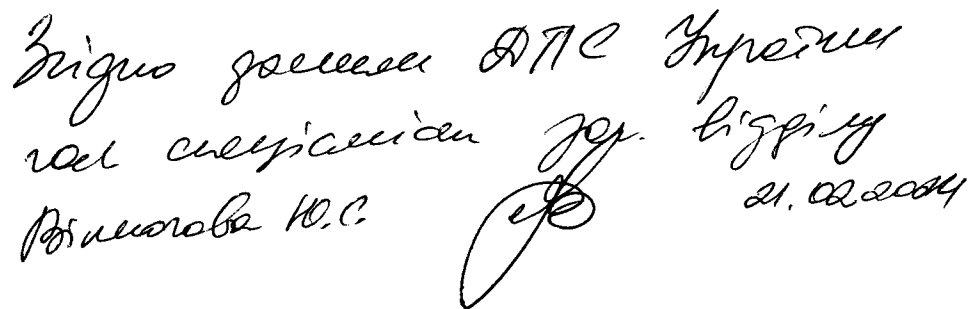 Згідно даним ДПС України
гол спеціаліст юр. відділу
Ю.С. 21.02.2024